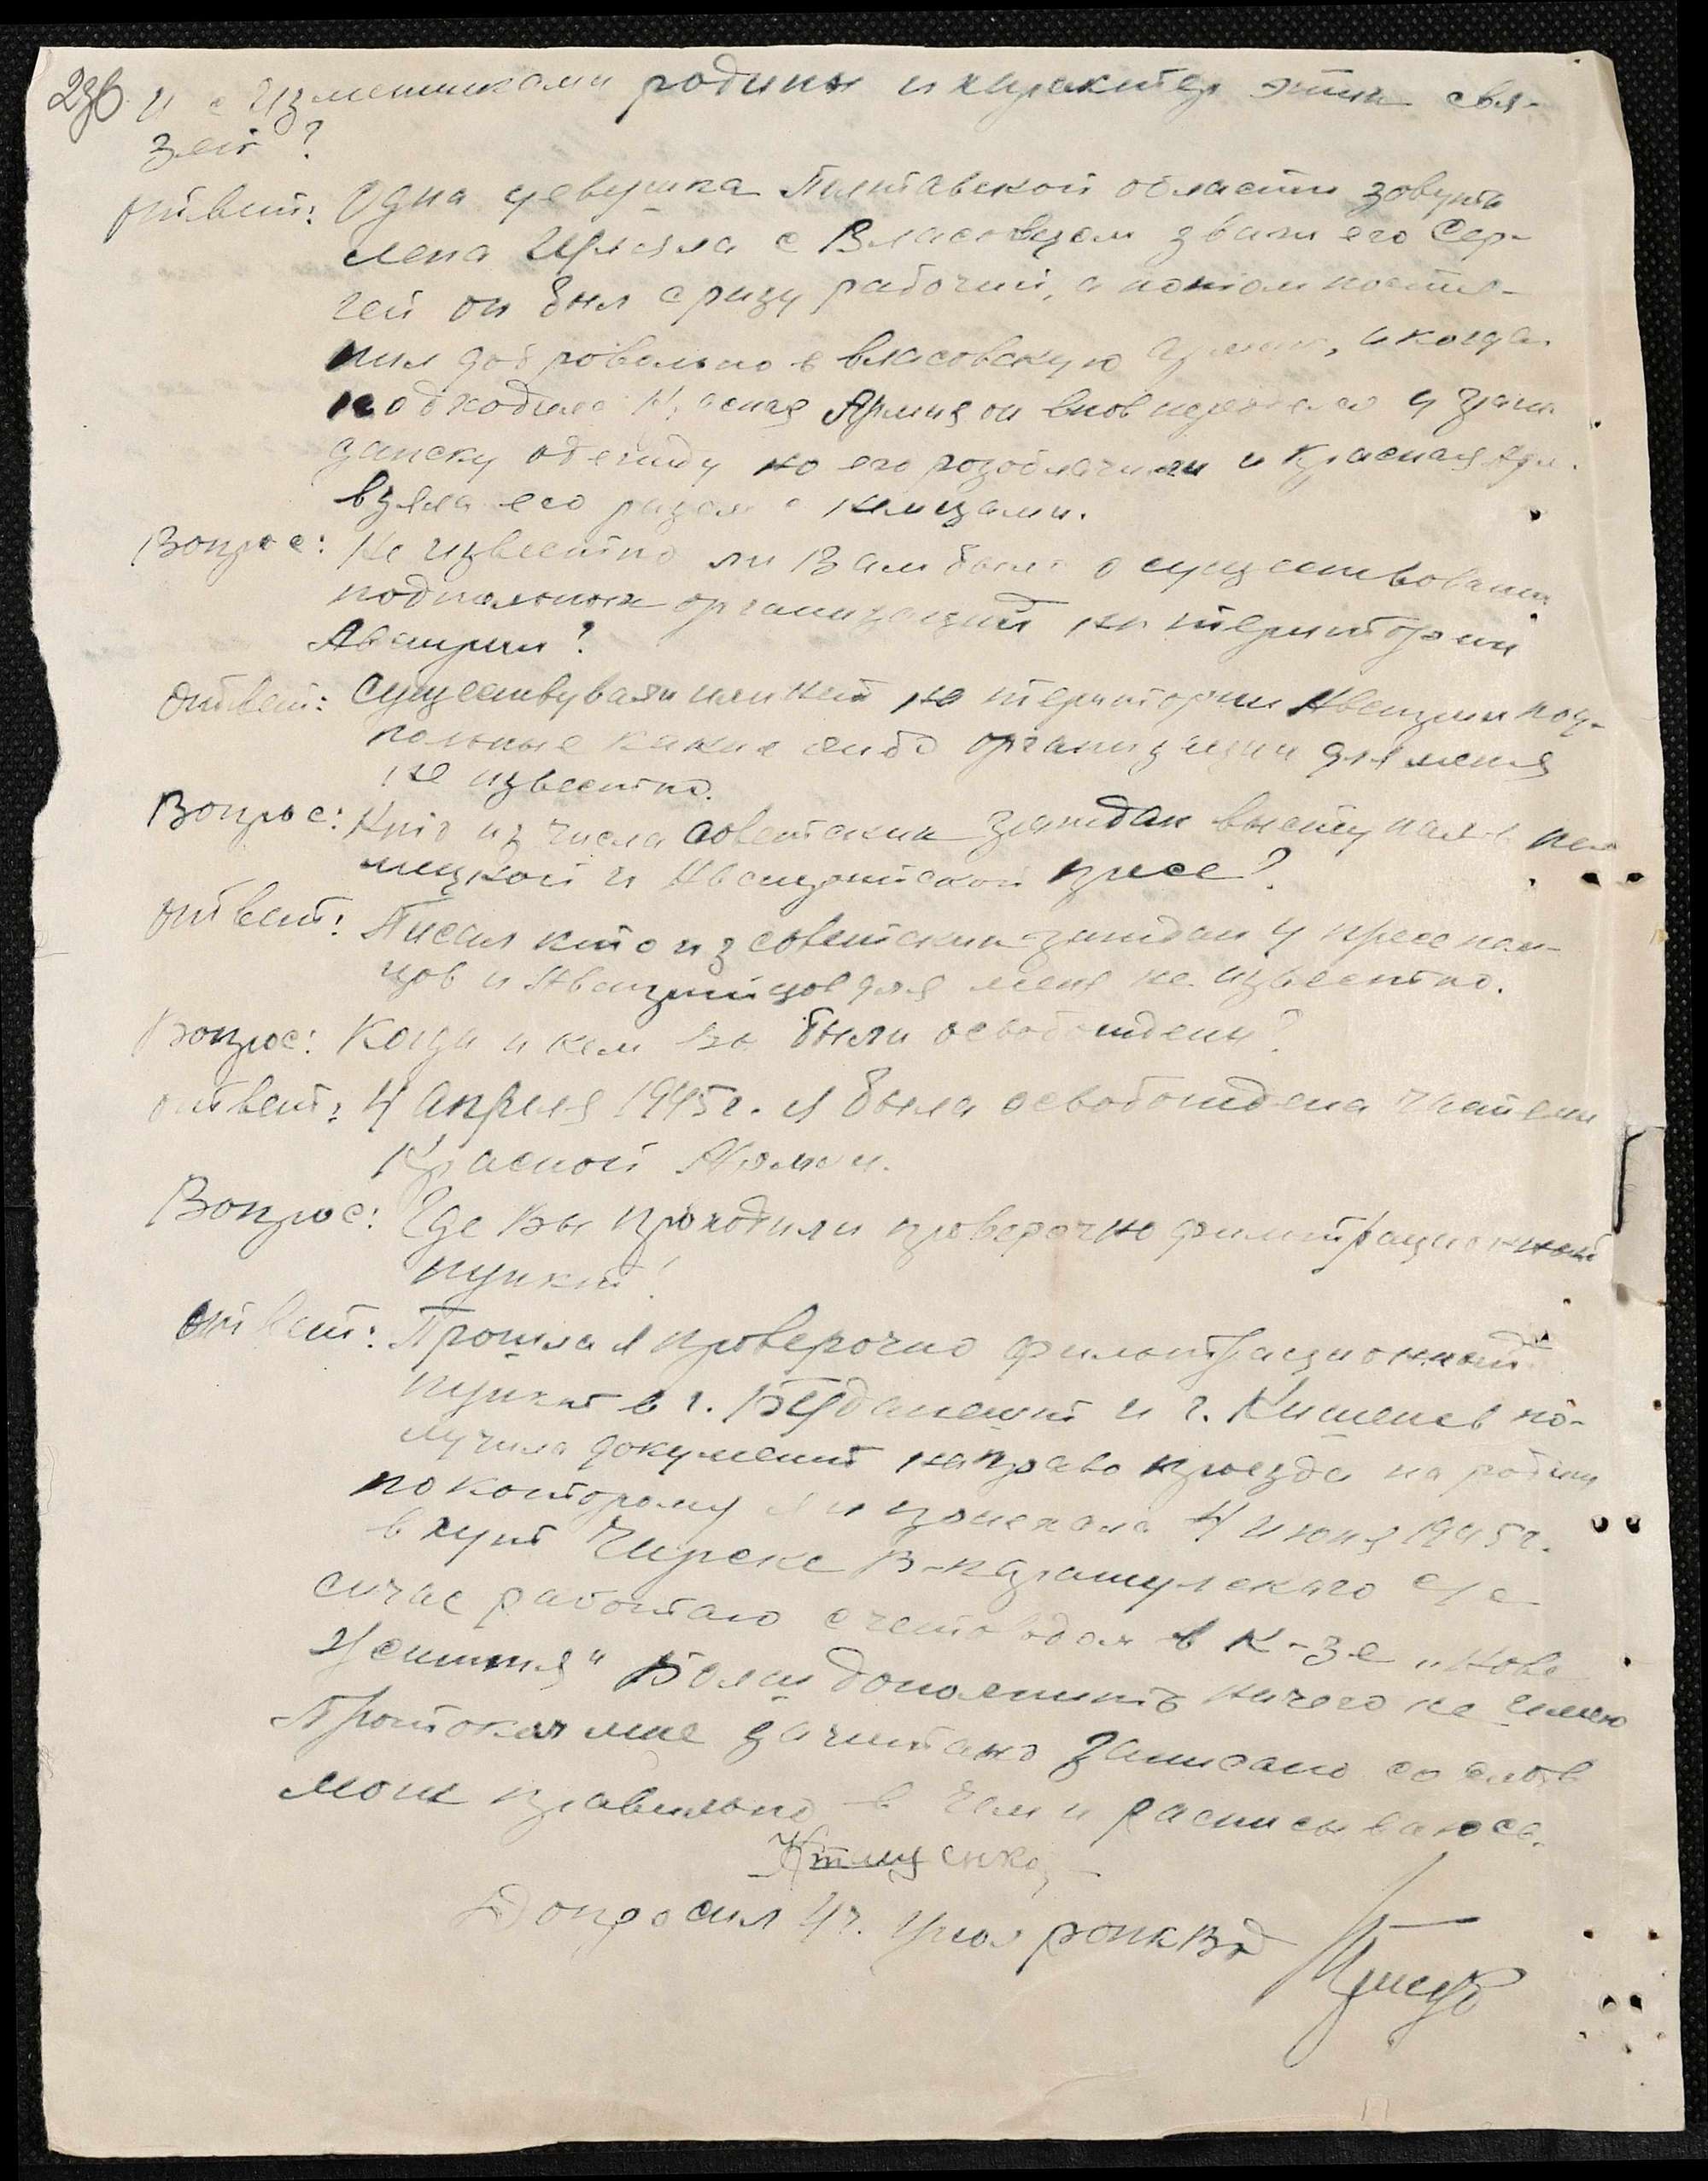 23б. и с Изменниками родины и характер этих свя-
зей?
ответ: Одна девушка Полтавской области зовуть
лена с Власовцом звали его Сер-
гей он был сразу рабочий, а потом посту-
пил добровольно в власовскую армию, а когда
подходила Красная Армия он вновь переоделся у граж
данску одежиду но его розоблачили и Красная Арм.
взяла его разом с немцами.
Вопрос: Не известно ли Вам было о существовании
подпольных организаций на територии
Австрии?
ответ: Существували или нет на територии Австрии под-
польные какие либо организации для меня
не известно.
Вопрос: Кто из числа советских граждан выступал в не
мецкой и Австрийской пресе?
ответ: Писал кто из советских граждан у пресе нем-
цов и Австрийцов для меня не известно.
Вопрос: Когда и кем вы были освобождены?
ответ: 4 апреля 1945г. я была освобождена частями
Красной Армии.
Вопрос: Где Вы проходили проверочно фильтрационный
пункт?
ответ: Прошла я проверочно фильтрационный
пункт в г. Будапешт и г. Кишенев по-
лучила документ на право проезда на родину
по которому я и приехала 4 июня 1945г.
в хут Чирске В-
сичас работаю счетоводом в к-зе „Нове
Життя" Болш дополнить ничего не имею
Протокол мне зачитано записано со слов
моих правильно в чем и расписываюсь.
Допросил Уч. Упол РОНКВД